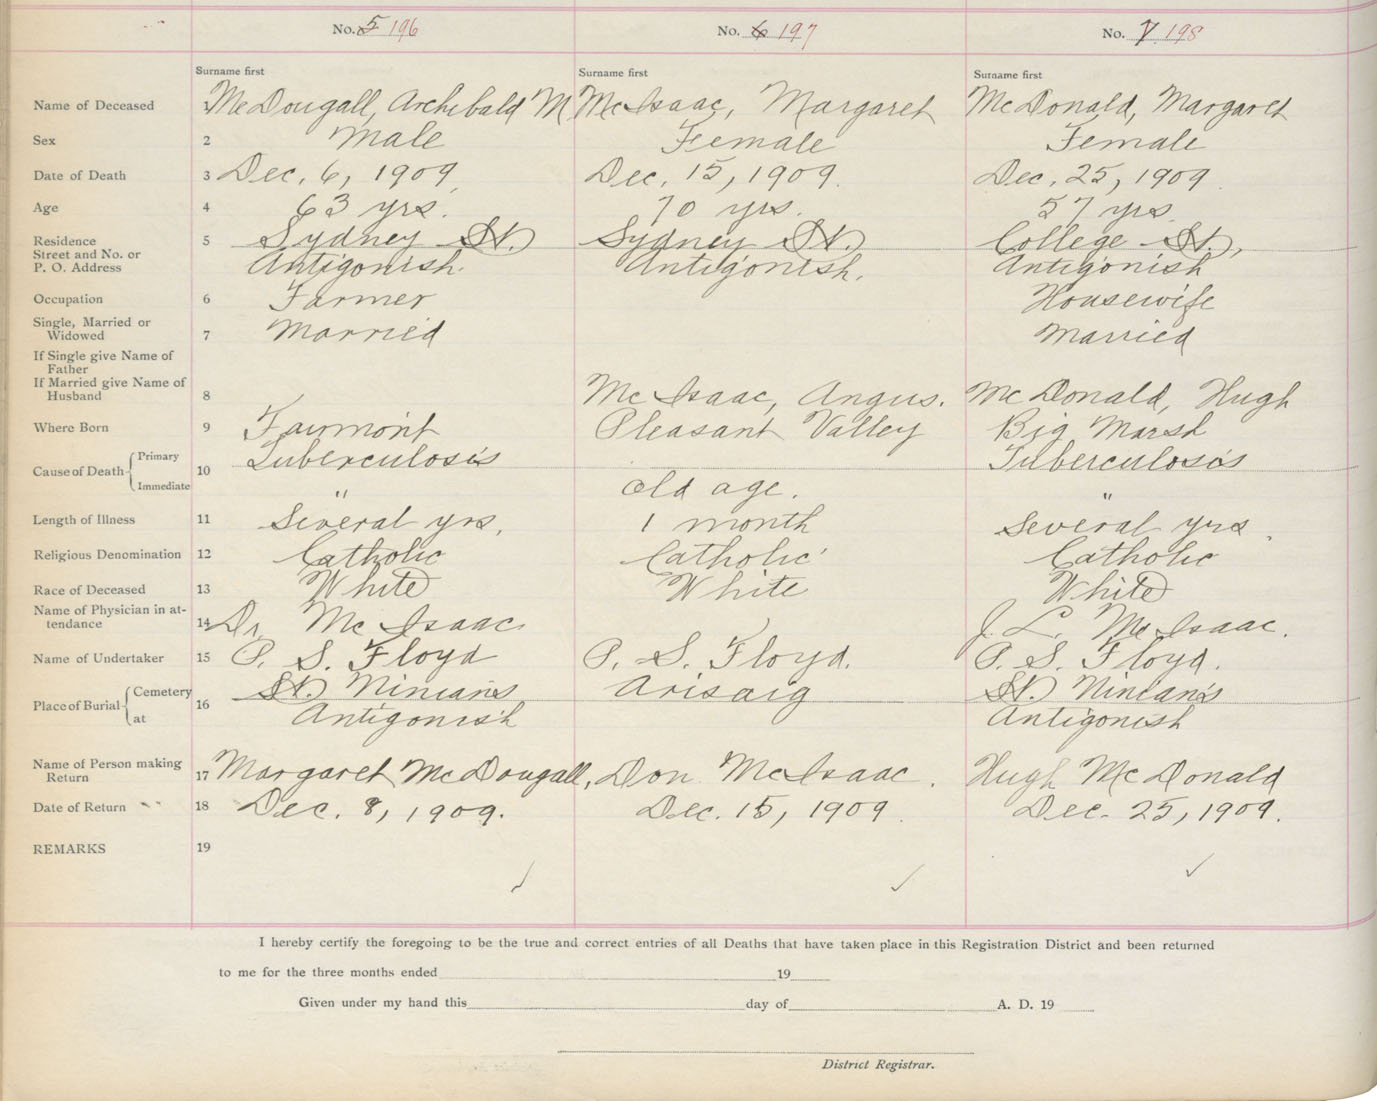 No. 5 196 No. 6 197 No. 7 198
Surname first Surname first Surname first
Name of Deceased 1 McDougall, Archibald M McIsaac, Margaret McDonald, Margaret
Sex 2 Male Female Female
Date of Death 3 Dec. 6, 1909 Dec. 15, 1909. Dec. 25, 1909
Age 4 63 yrs. 70 yrs. 57 yrs
Residence 5 Sydney St. Sydney St. College St.,
Street and No. or
P. O. Address Antigonish. Antigonish. Antigonish
Occupation 6 Farmer Housewife
Single, Married or
Widowed 7 Married Married
If Single give Name of
Father
If Married give Name of
Husband 8 McIsaac, Angus. McDonald, Hugh
Where Born 9 Fairmont Pleasant Valley Big Marsh
Cause of Death Primary 10 Tuberculosis Tuberculosis
Immediate " old age. "
Length of Illness 11 Several yrs, 1 month Several yrs.
Religious Denomination 12 Catholic Catholic Catholic
Race of Deceased 13 White White White
Name of Physician in at-
tendance 14 Dr. McIsaac J. L. McIsaac.
Name of Undertaker 15 P. S. Floyd P. S. Floyd. P. S. Floyd.
Place of Burial Cemetery 16 St. Ninian's Arisaig St. Ninian's
at Antigonish Antigonish
Name of Person making
Return 17 Margaret McDougall, Don McIsaac. Hugh McDonald
Date of Return 18 Dec. 8, 1909. Dec. 15, 1909. Dec. 25, 1909.
REMARKS 19
I hereby certify the foregoing to be the true and correct entries of all Deaths that have taken place in this Registration District and been returned
to me for the three months ended 19
Given under my hand this day of A. D. 19
District Registrar.